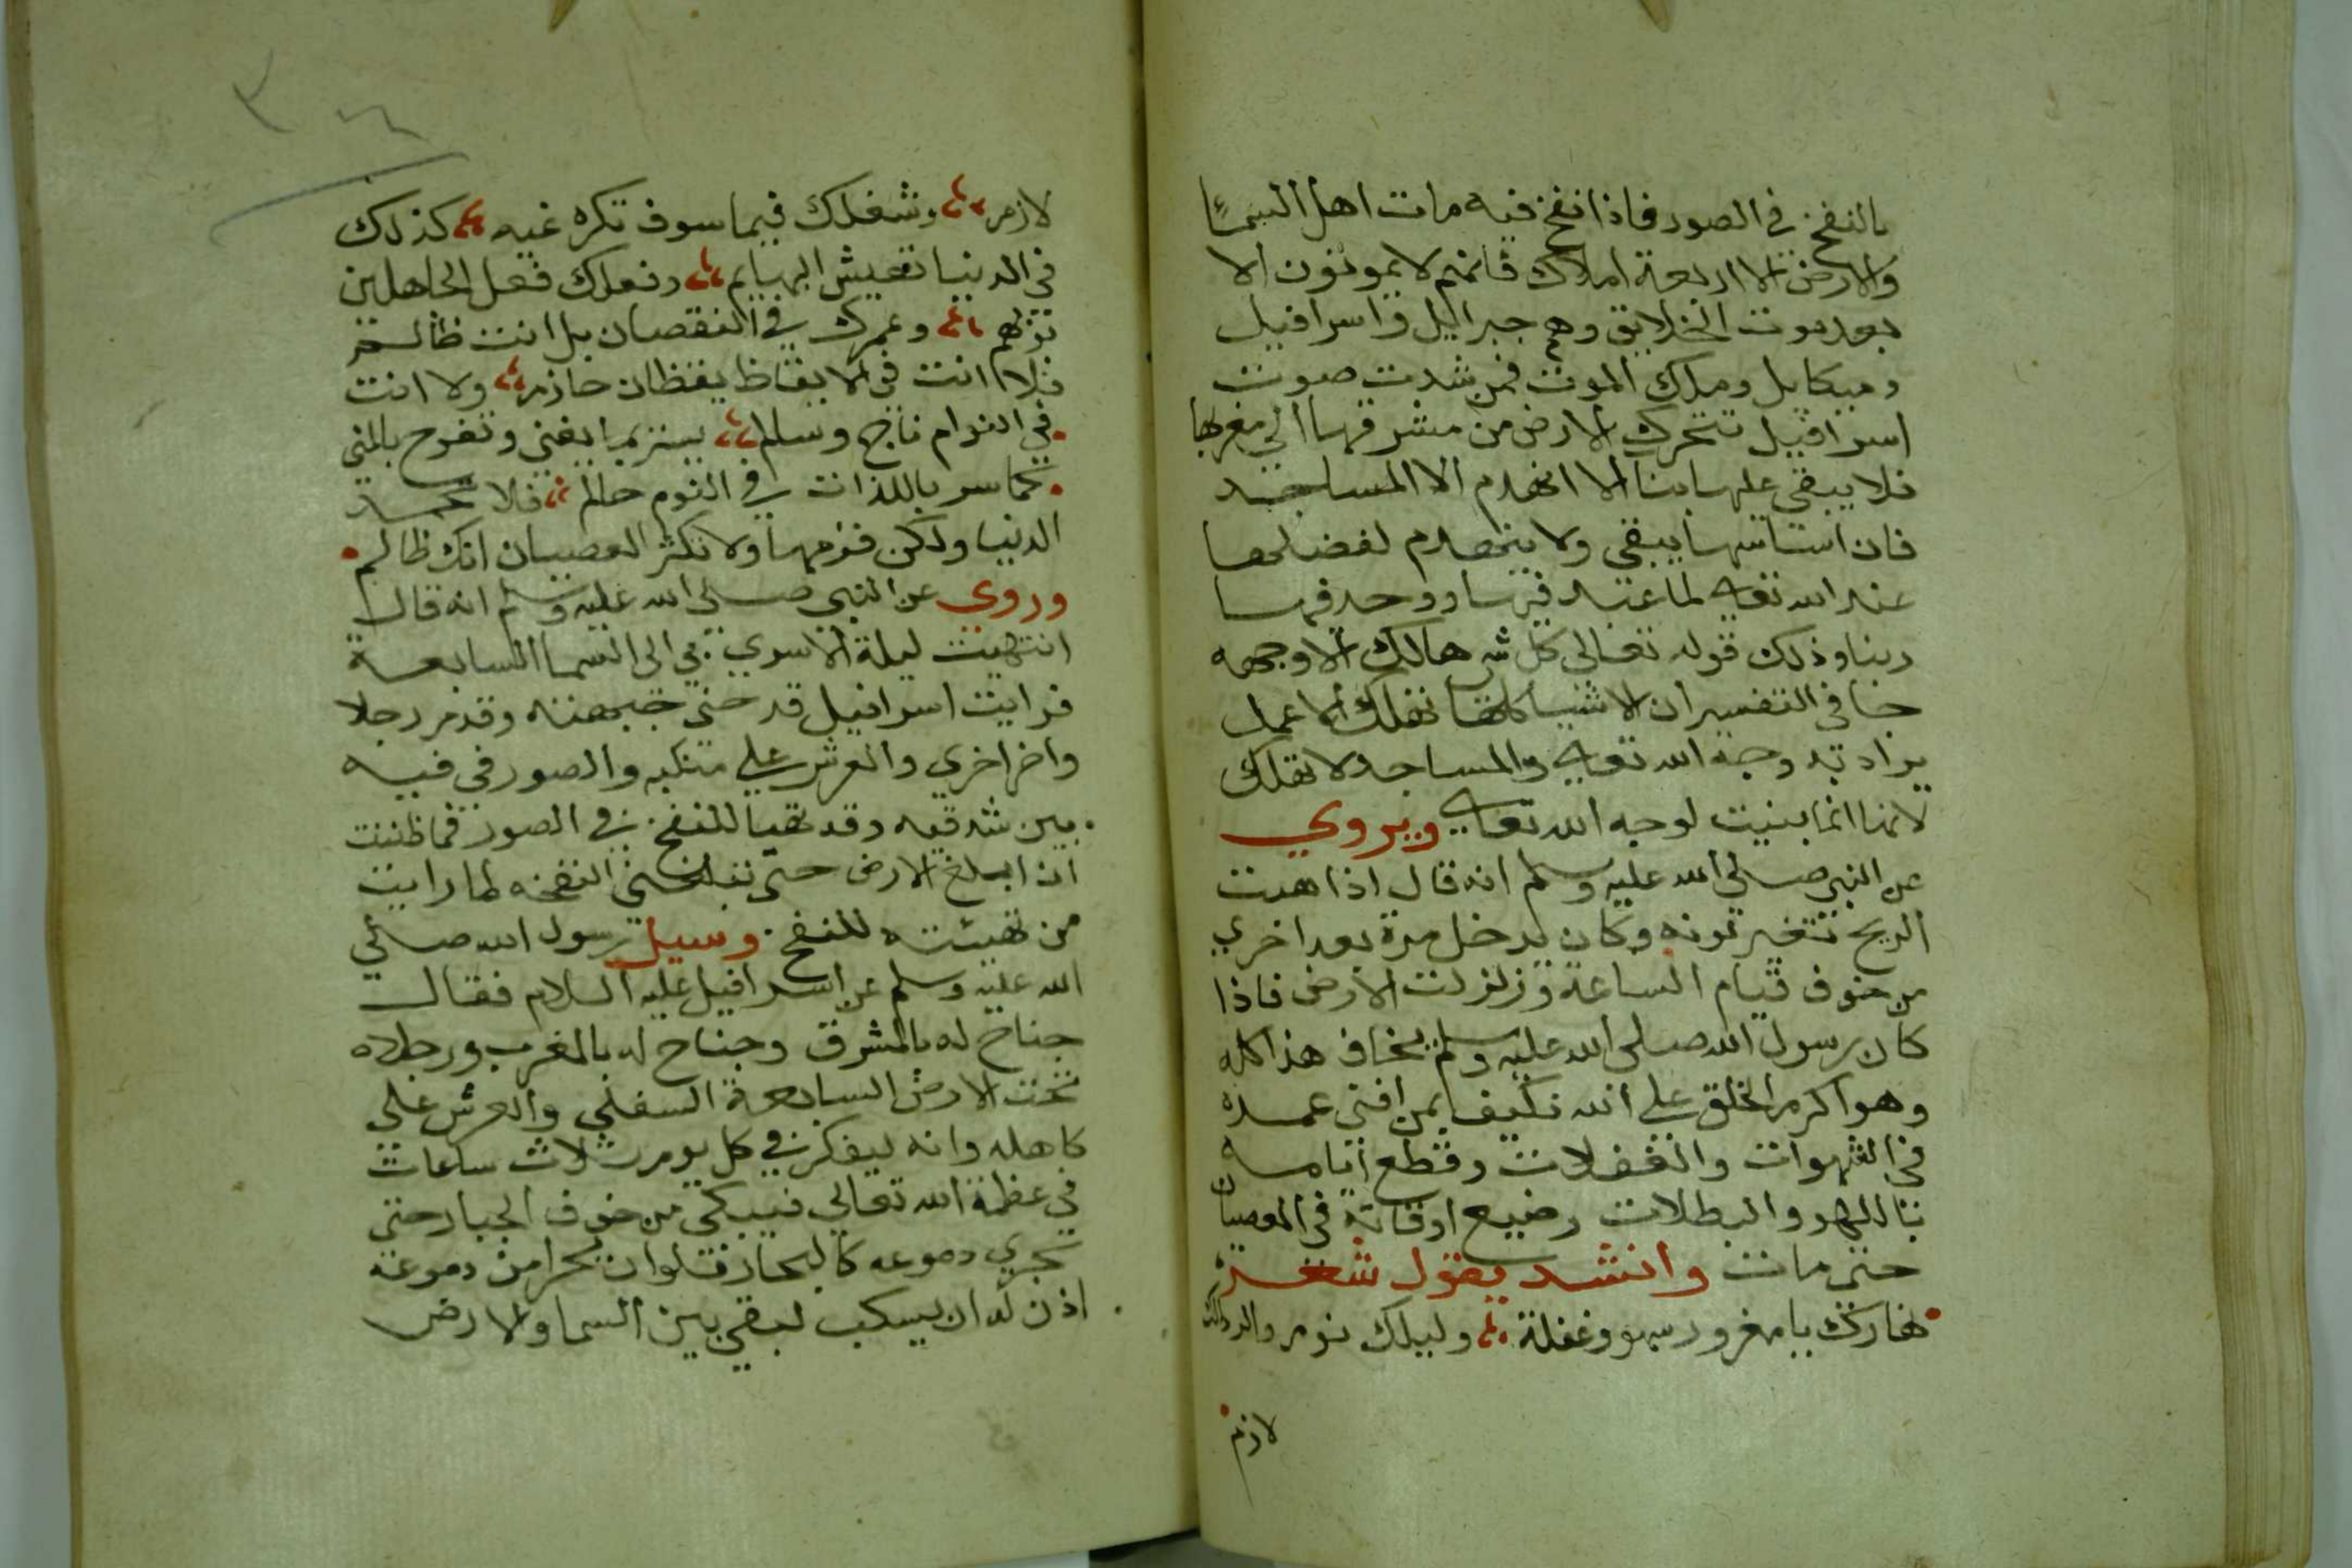 بالنفخ في الصور فاذا نفخ فيه مات اهل السما
والارض الا اربعة املاك فانهم لا يموتون الا
بعد موت الخلايق وهم جبرائيل واسرافيل
وميكايل وملك الموت فمن شدت صوت
اسرافيل تتحرك الارض من مشرقها الي مغربها
فلا يبقي عليها بنا الا انهدم الا المساجد
فان استاسها يبقي ولا ينهدم لفضلها
عند الله تعالي لما عبد فيها ووحد فيها
ربنا وذلك قوله تعالي كل شي هالك الا وجهه
جا في التفسير ان الاشيا كلها تهلك الا عمل
يراد به وجه الله تعالي والمساجد لا تهلك
لانها انما بنيت لوجه الله تعالي ويروي
عن النبي صلي الله عليه وسلم انه قال اذا هبت
الريح تتغير لونه وكان يدخل مرة بعد اخري
من خوف قيام الساعة وزلزلت الارض فاذا
كان رسول الله صلي الله عليه وسلم يخاف هذا كله
وهو اكرم الخلق علي الله فكيف بمن افني عمره
في الشهوات والغفلات وقطع ايامه
باللهو والبطلات وضيع اوقاته في المعصيان
حتي مات وانشد يقول شعر
نهارك يا مغرور سهو وغفلة وليلك نوم والردالك
لازم
٣٦
لازم وشغلك فيما سوف تكره غيه كذلك
في الدنيا تعيش البهايم وفعلك فعل الجاهلين
بربهم وعمرك في النقصان بل انت ظالم
فلا انت في الايقاظ يقظان حازم ولا انت
في النوام ناج وسالم يسر بما يفني وتفرح بالمني
كما سر باللذات في النوم حالم فلا تحمد
الدنيا ولكن فذمها ولا تكثر العصيان انك ظالم
وروي عن النبي صلي الله عليه وسلم انه قال
انتهيت ليلة الاسري بي الى السما السابعة
فرايت اسرافيل قد حني جبهته وقدم رجلا
واخر اخري والعرش علي منكبه والصور في فيه
بين شدقيه وقد تهيا للنفخ في الصور فما ظننت
ان ابلغ الارض حتي تبلغني النفخه لما رايت
من تهيئته للنفخ وسيل رسول الله صلي
الله عليه وسلم عن اسرافيل عليه السلام فقال
جناح له بالمشرق وجناح له بالمغرب ورجلاه
تحت الارض السابعة السفلي والعرش علي
كاهله وانه ليفكر في كل يوم ثلاث ساعات
في عظمة الله تعالي فيبكي من خوف الجبار حتي
تجري دموعه كالبحار فلو ان بحرا من دموعه
اذن له ان يسكب لبقي بين السما والارض